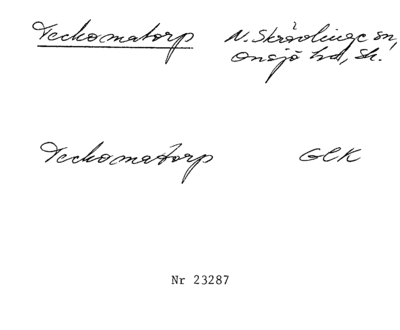 Teckomatorp N. Skrävlinge sn,
Onsjö hd, Sk.
Teckomatorp GEK
Nr 23287